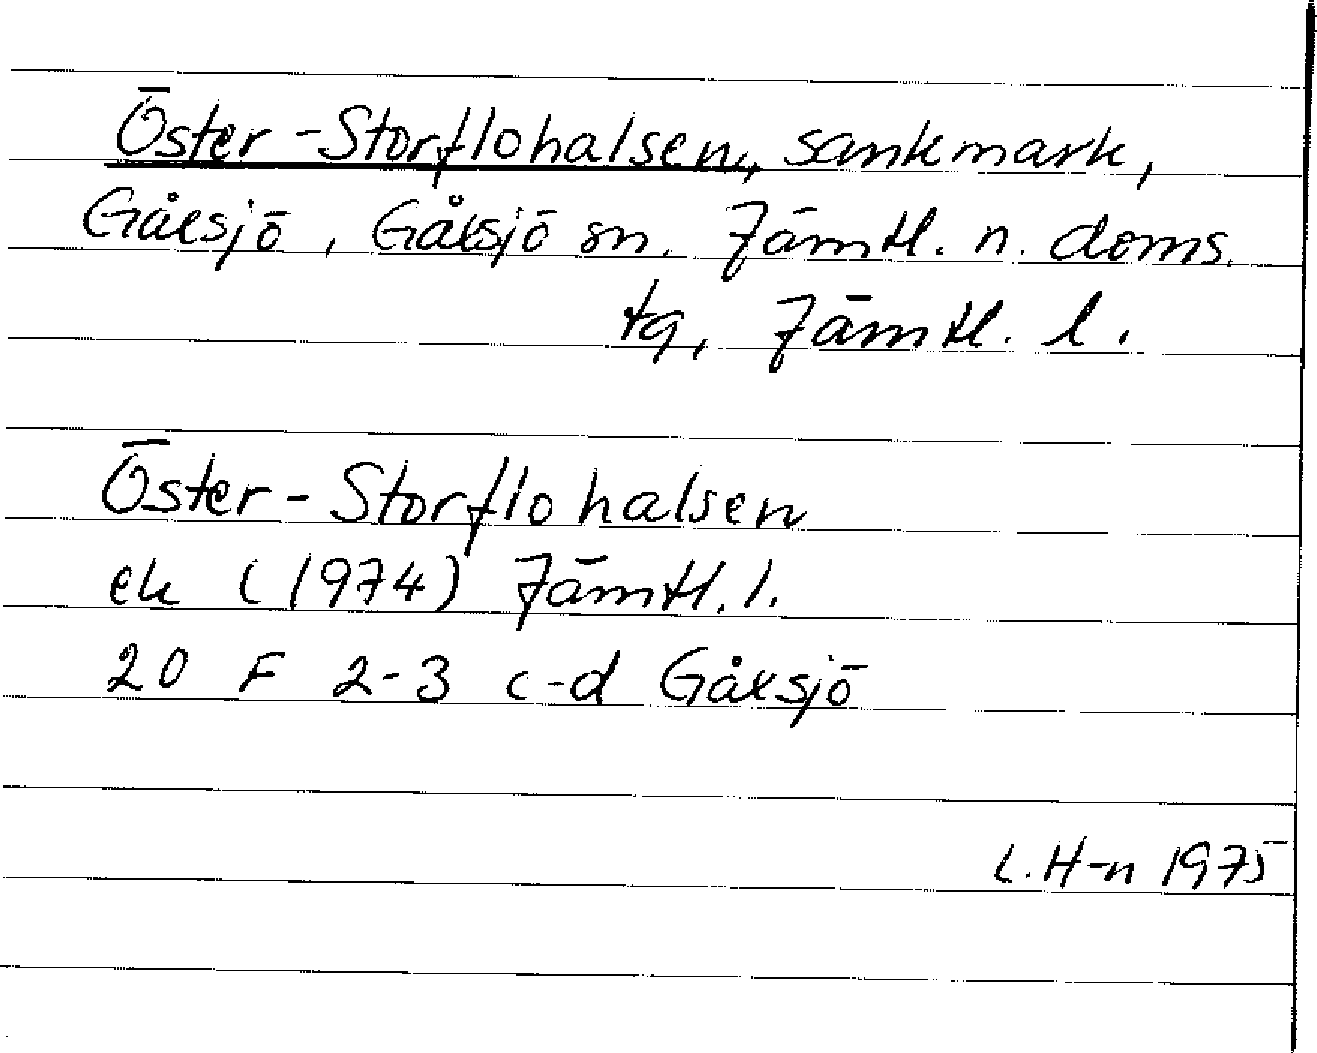 Öster-Storflohalsen, sankmark,
Gåxsjö, Gåxsjö sn. Jämtl. n. doms.
tg, Jämtl. l.
Öster-Storflohalsen
ek (1974) Jämtl. l.
20 F 2-3 c-d Gåxsjö
L. H-n 1975